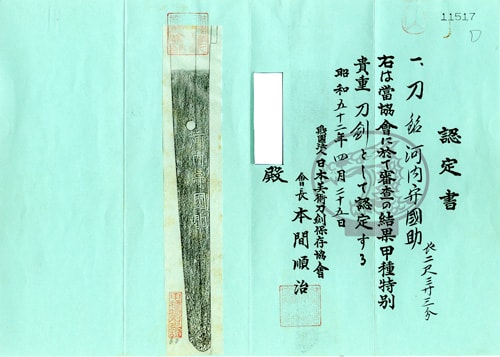 11517
D
認定書
一、刀 銘 河内守國助 長二尺三寸三分
右は當協會に於て審査の結果甲種特別
貴重刀剣として認定する
昭和五十二年四月二十五日
財團法人日本美術刀剣保存協會
會長 本間順治
殿